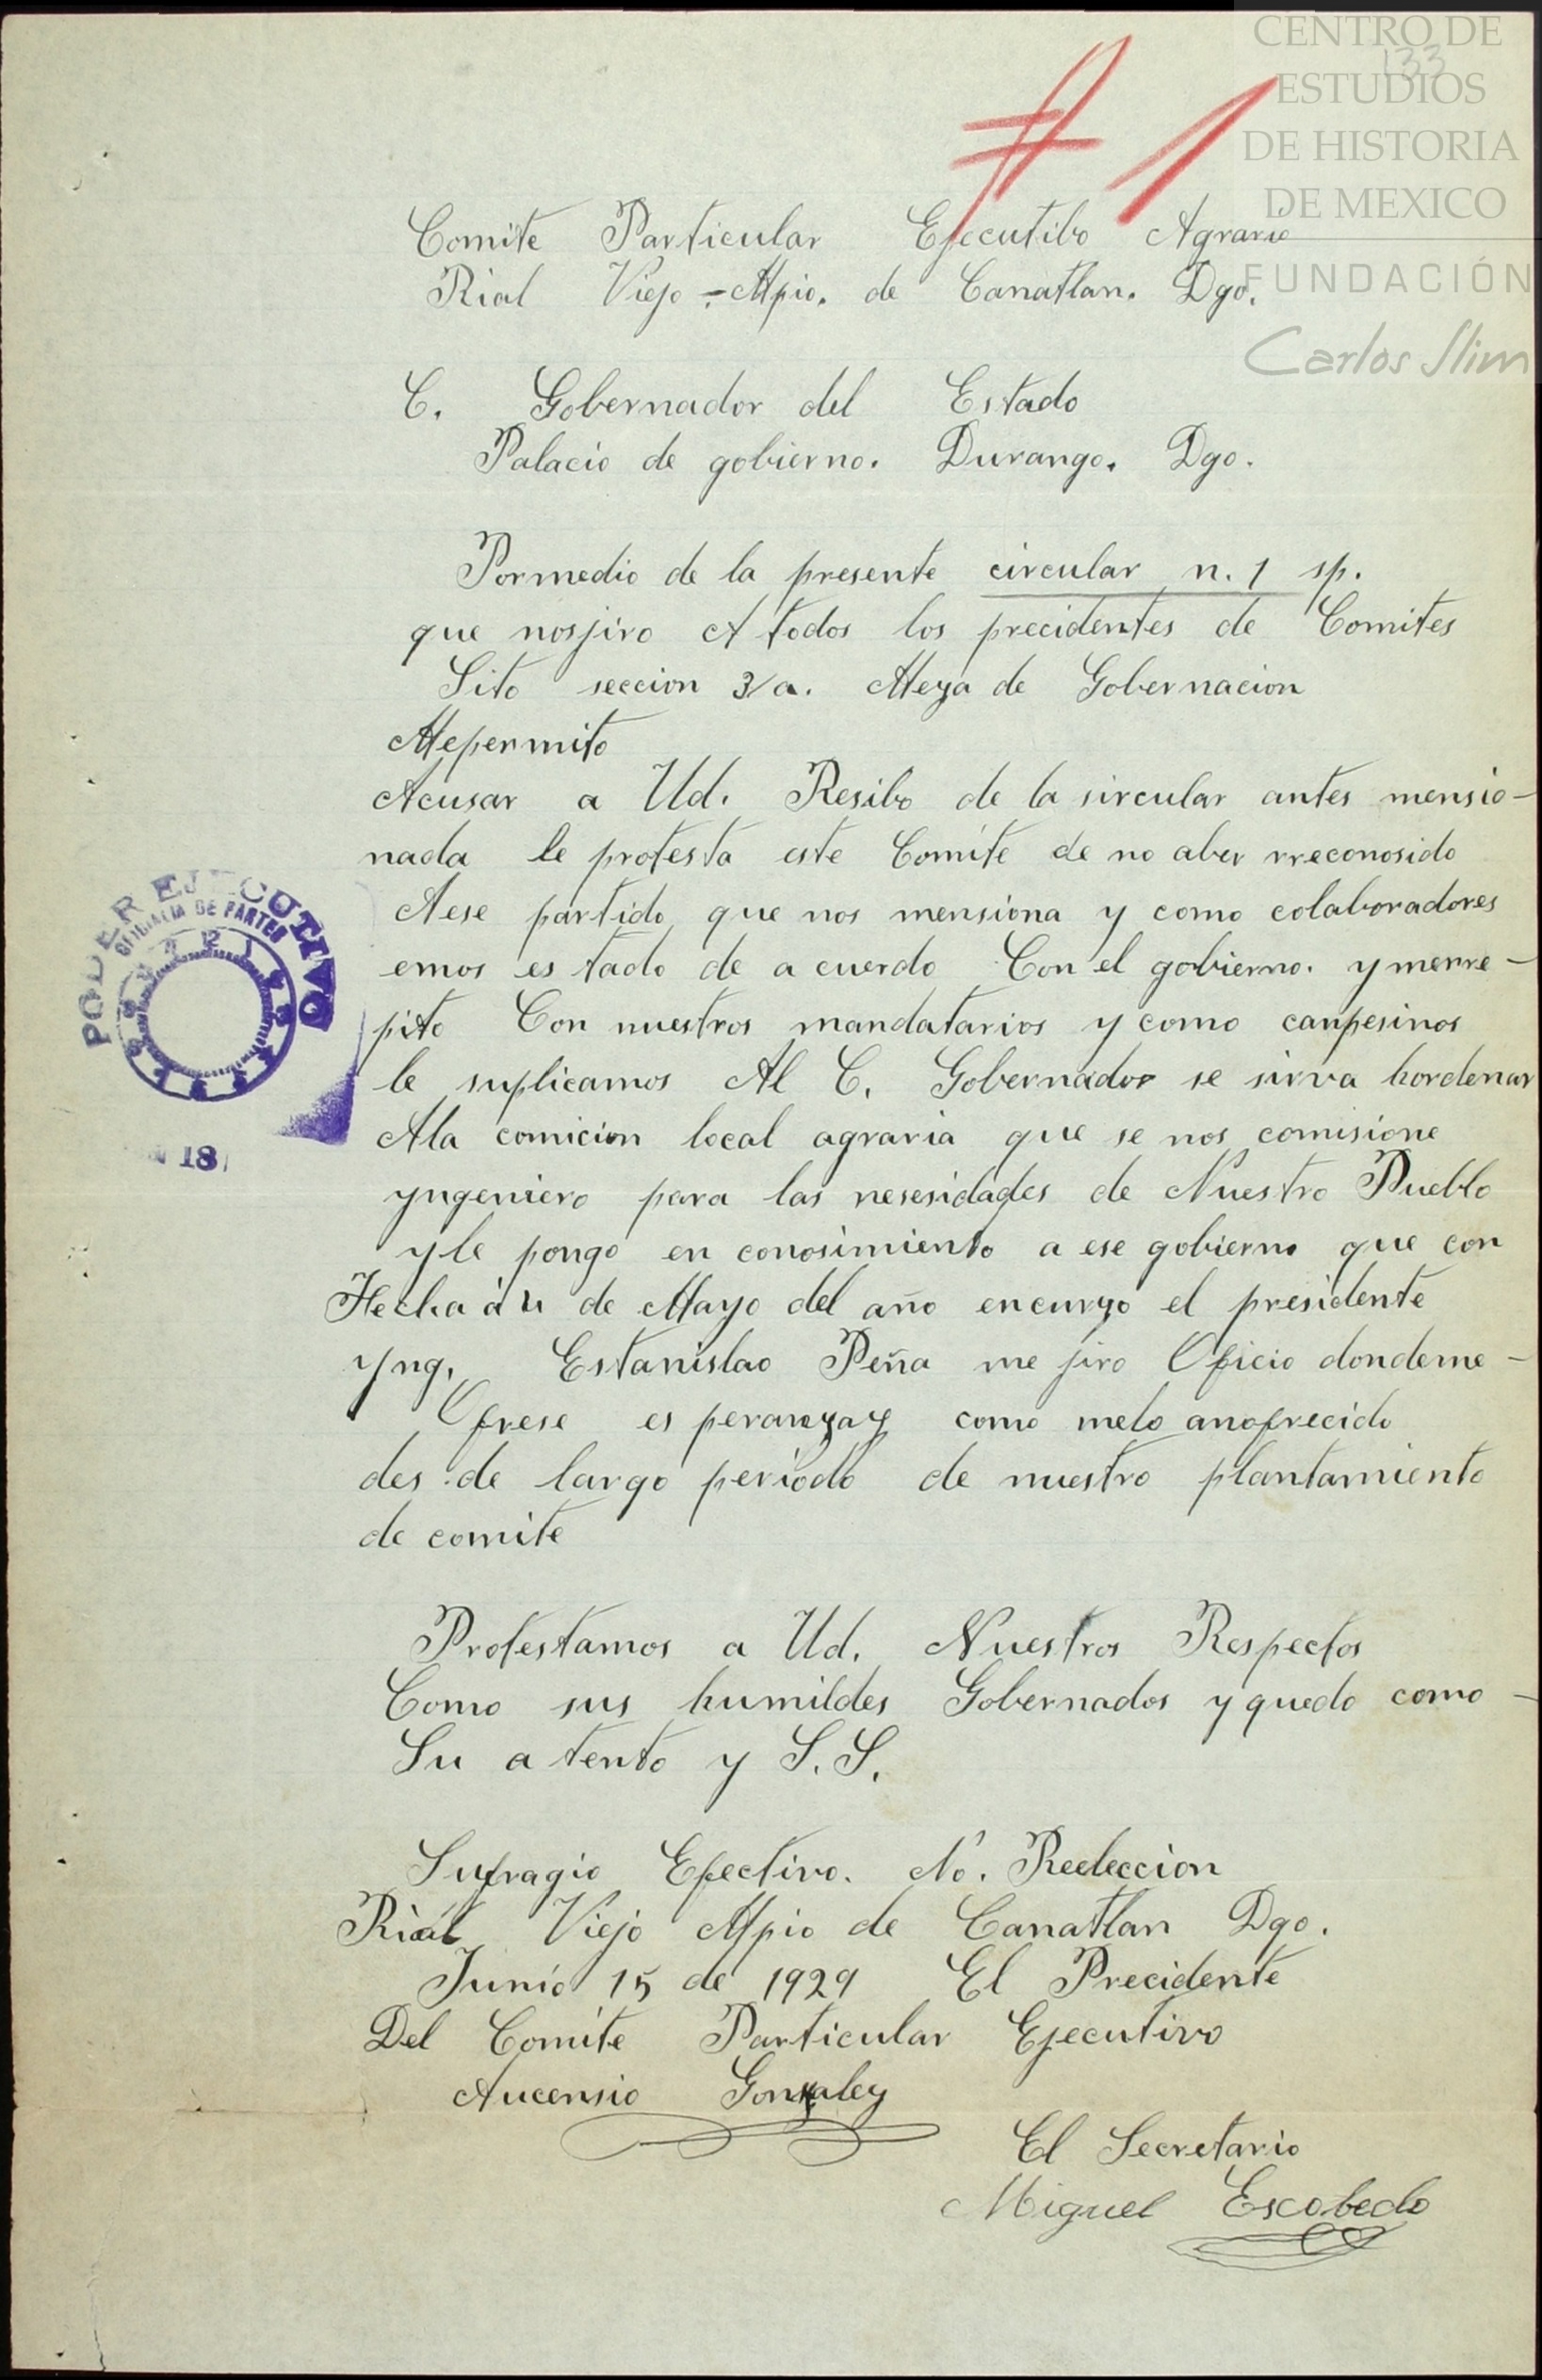 CENTRO DE
ESTUDIOS
DE HISTORIA
DE MEXICO
FUNDACIÓN
Carlos Slim
133
# 1
Comite Particular Ejecutibo Agrario
Rial Viejo - Mpio. de Canatlan. Dgo.
C. Gobernador del Estado
Palacio de gobierno. Durango. Dgo.
Pormedio de la presente circular n. 1 sp.
que nosjiro A todos los precidentes de Comites
Sito seccion 3/a. Meza de Gobernacion
Mepermito
Acusar a Ud. Resibo de la sircular antes mensio-
nada le protesta este Comite de no aber rreconosido
Aese partido que nos mensiona y como colaboradores
emos es tado de a cuerdo Con el gobierno. y merre-
pito Con nuestros mandatarios y como canpesinos
le suplicamos Al C. Gobernador se sirva hordenar
Ala comicion local agraria que se nos comisione
yngeniero para las nesesidades de Nuestro Pueblo
yle pongo en conosimiento a ese gobierno que con
Fecha á 4 de Mayo del año encurzo el presidente
Yng. Estanislao Peña me jiro Oficio dondeme-
Ofrese es peranzaz como melo anofrecido
des de largo periodo de nuestro plantamiento
de comite
Protestamos a Ud. Nuestros Respectos
Como sus humildes Gobernados y quedo como-
Su a tento y S. S.
Sufragio Efectivo. No. Reeleccion
Rial Viejo Mpio de Canatlan Dgo.
Junio 15 de 1929 El Precidente
Del Comite Particular Ejecutivo
Aucensio Gonzalez
El Secretario
Miguel Escobedo
PODER EJECUTIVO
OFICIALIA DE PARTES
18